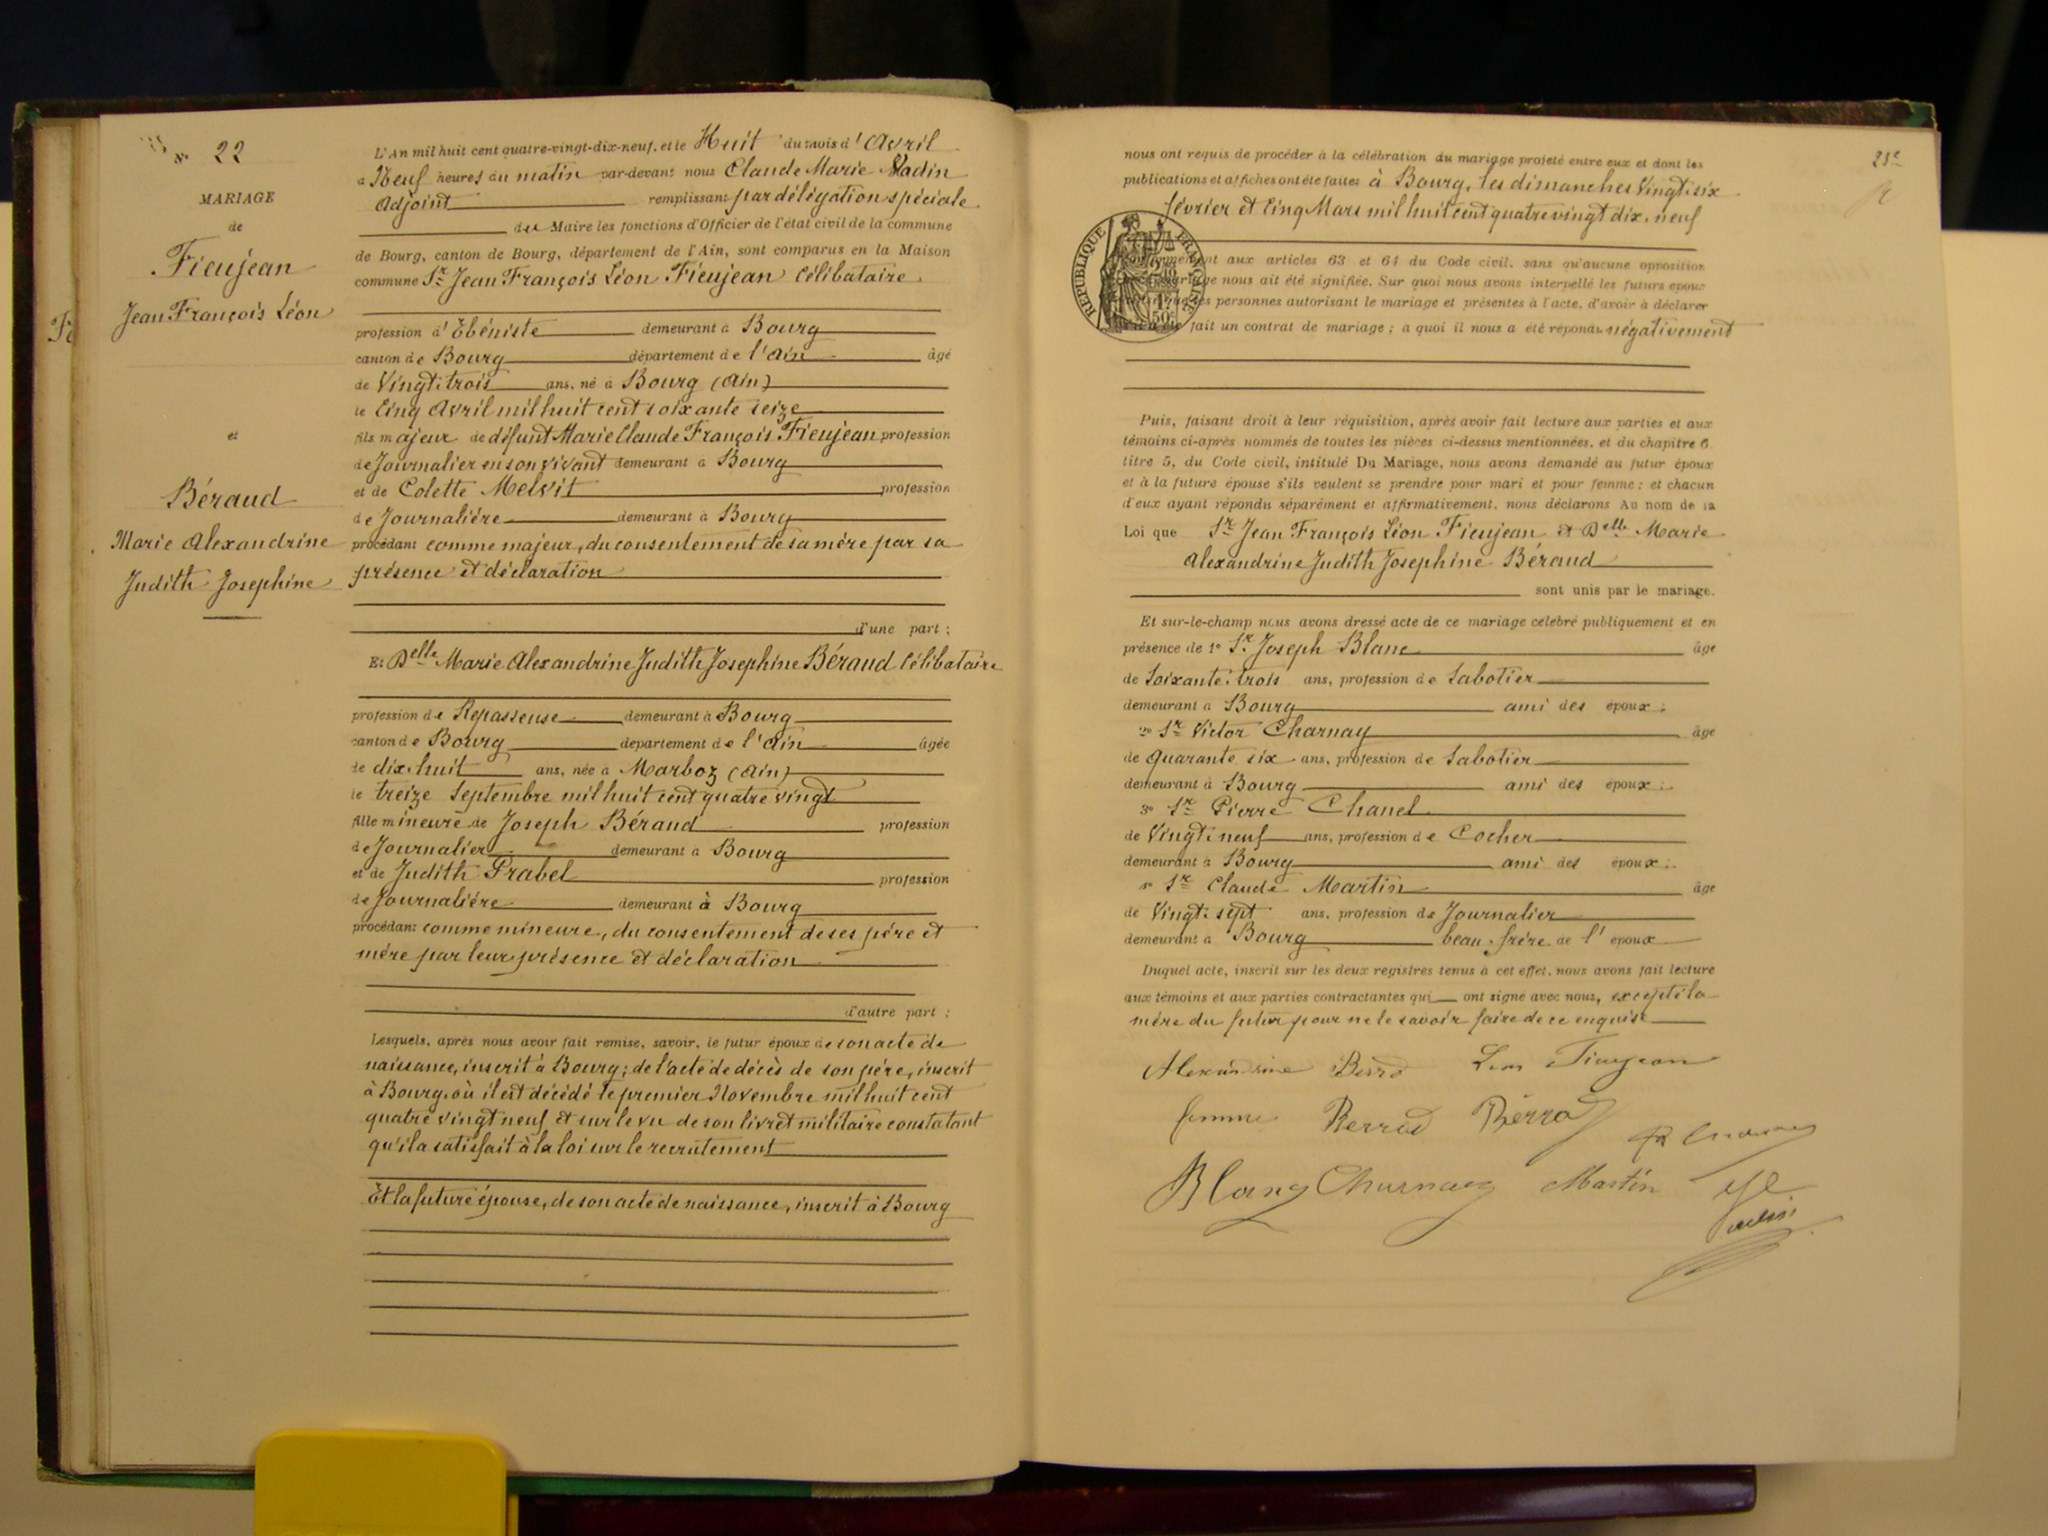 N° 22
MARIAGE
de
Fieujean
Jean François Léon
et
Béraud
Marie Alexandrine
Judith Josephine
L'An mil huit cent quatre-vingt-dix-neuf, et le Huit du mois d'Avril
à Neuf heures du matin par-devant nous Claude Marie Vadin
Adjoint remplissant par délégation spéciale
du Maire les fonctions d'Officier de l'état civil de la commune
de Bourg, canton de Bourg, département de l'Ain, sont comparus en la Maison
commune Sr Jean François Léon Fieujean Célibataire
profession d'Ebéniste demeurant à Bourg
canton de Bourg département de l'Ain âgé
de Vingt-trois ans, né à Bourg (Ain)
le Cinq Avril mil huit cent soixante seize
fils majeur de défunt Marie Claude François Fieujean profession
de Journalier en son vivant demeurant à Bourg
et de Colette Melvit profession
de Journalière demeurant à Bourg
procédant comme majeur, du consentement de sa mère par sa
présence et déclaration
d'une part ;
Et Delle Marie Alexandrine Judith Josephine Béraud Célibataire
profession de Repasseuse demeurant à Bourg
canton de Bourg département de l'Ain âgée
de dix-huit ans, née à Marboz (Ain)
le treize Septembre mil huit cent quatre vingt
fille mineure de Joseph Béraud profession
de Journalier demeurant à Bourg
et de Judith Prabel profession
de Journalière demeurant à Bourg
procédant comme mineure, du consentement de ses père et
mère par leur présence et déclaration
d'autre part ;
Lesquels, après nous avoir fait remise, savoir, le futur époux de son acte de
naissance, inscrit à Bourg ; de l'acte de décès de son père, inscrit
à Bourg, où il est décédé le premier Novembre mil huit cent
quatre vingt neuf et sur le vu de son livret militaire constatant
qu'il a satisfait à la loi sur le recrutement
Et la future épouse, de son acte de naissance, inscrit à Bourg
nous ont requis de procéder à la célébration du mariage projeté entre eux et dont les
publications et affiches ont été faites à Bourg, les dimanches Vingt-six
février et Cinq Mars mil huit cent quatre vingt dix-neuf
REPUBLIQUE FRANÇAISE
aux articles 63 et 64 du Code civil, sans qu'aucune opposition
nous ait été signifiée. Sur quoi nous avons interpellé les futurs époux
personnes autorisant le mariage et présentes à l'acte, d'avoir à déclarer
fait un contrat de mariage ; à quoi il nous a été répondu négativement
Puis, faisant droit à leur réquisition, après avoir fait lecture aux parties et aux
témoins ci-après nommés de toutes les pièces ci-dessus mentionnées, et du chapitre 6
titre 5, du Code civil, intitulé Du Mariage, nous avons demandé au futur époux
et à la future épouse s'ils veulent se prendre pour mari et pour femme ; et chacun
d'eux ayant répondu séparément et affirmativement, nous déclarons Au nom de la
Loi que Sr Jean François Léon Fieujean et Delle Marie
Alexandrine Judith Josephine Béraud
sont unis par le mariage.
Et sur-le-champ nous avons dressé acte de ce mariage célébré publiquement et en
présence de 1° Sr Joseph Blanc âgé
de Soixante-trois ans, profession de Sabotier
demeurant à Bourg ami des époux ;
2° Sr Victor Charnay âgé
de quarante six ans, profession de Sabotier
demeurant à Bourg ami des époux ;
3° Sr Pierre Chanel
de Vingt-neuf ans, profession de Cocher
demeurant à Bourg ami des époux ;
Sr Claude Martin âgé
de Vingt-sept ans, profession de Journalier
demeurant à Bourg beau-frère de l'époux
Duquel acte, inscrit sur les deux registres tenus à cet effet, nous avons fait lecture
aux témoins et aux parties contractantes qui ont signé avec nous, excepté la
mère du futur pour ne le savoir faire de ce enquise
Léon Fieujean
femme
Blanc Charnay Martin